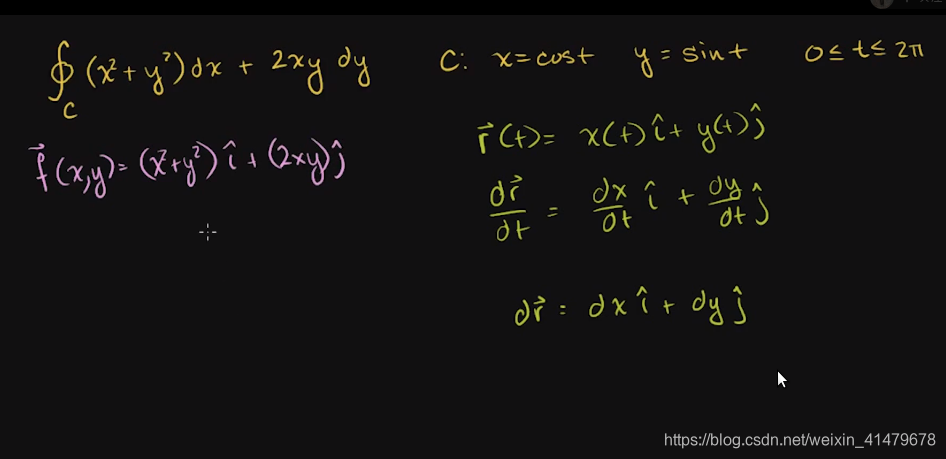 ∮_C (x²+y²)dx + 2xy dy    C: x=cost  y=sint  0≤t≤2π
f⃗(x,y)=(x²+y²)î+(2xy)ĵ    r⃗(t)= x(t)î+y(t)ĵ
dr⃗/dt = dx/dt î + dy/dt ĵ
dr⃗ = dx î + dy ĵ
https://blog.csdn.net/weixin_41479678